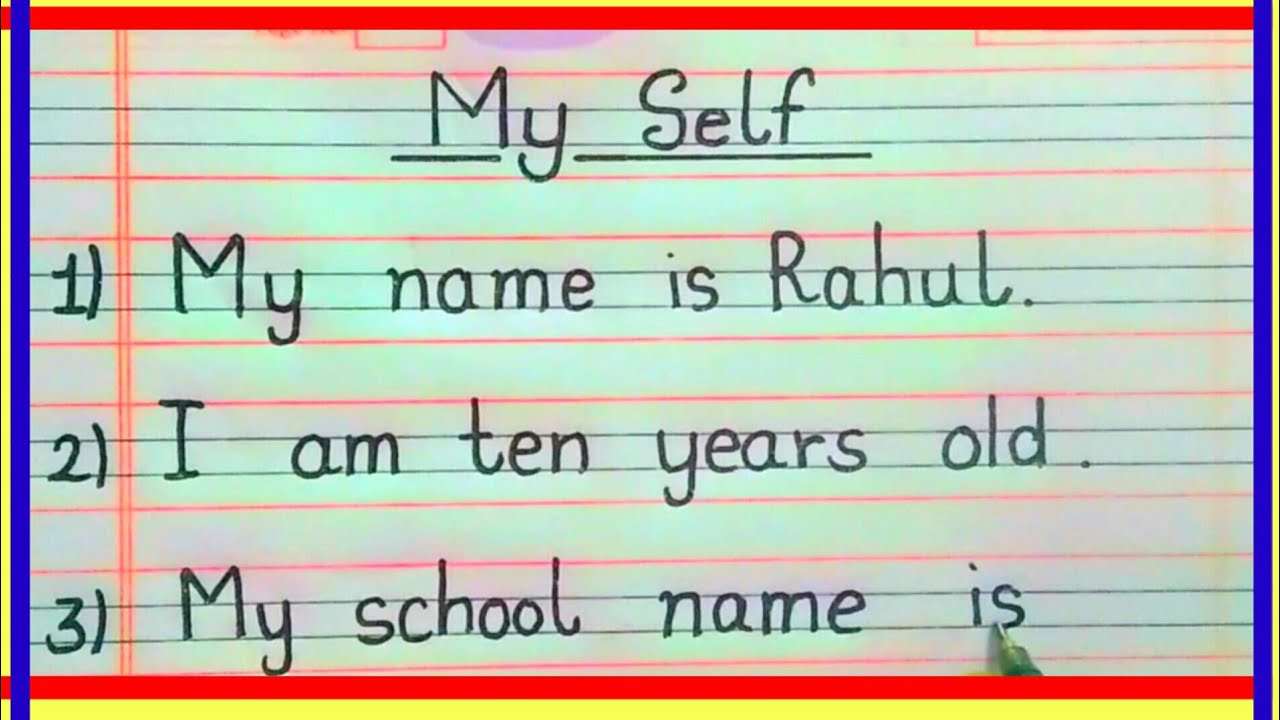 My Self
1) My name is Rahul.
2) I am ten years old.
3) My school name is